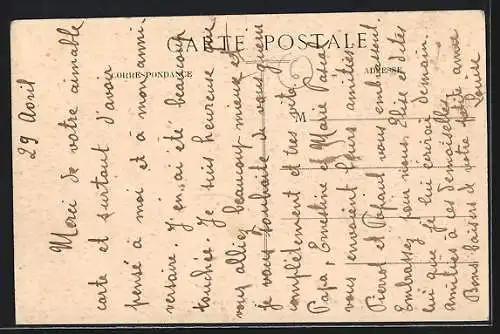 CARTE POSTALE
CORRESPONDANCE
ADRESSE
M
29 Avril
Merci de votre aimable
carte et surtout d'avoir
pensé à moi et à mon anni-
versaire. J'en ai été beaucoup
touchée. Je suis heureuse que
vous alliez beaucoup mieux et
je vous souhaite de vous guérir
complètement et très vite.
Papa, Ernestine et Marie Papa
vous envoient leurs amitiés.
Pierrot et vous embrassent.
Embrassez pour nous Elise et dites
lui que je lui écrirai demain.
amitiés à ces demoiselles.
Bons baisers de votre petite amie
Louise